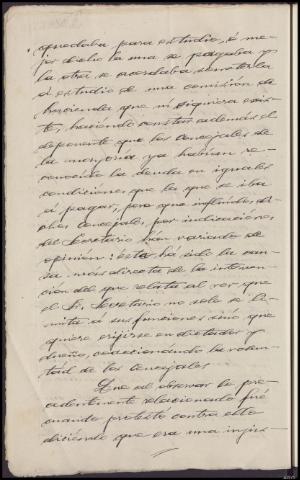 quedaba para estudio, ó me-
jor dicho la una se pagaba y
la otra se acordaba someterla
á estudio de una comisión de
hacienda que ni siquiera exis-
te, haciendo constar además el
deponente que los concejales de
la mayoria ya habian re-
conocido la deuda en iguales
condiciones que la que se iba
á pagar, pero que influidos di-
chos concejales, por indicaciones
del Secretario han variado de
opinión: esta há sido la cau-
sa mas directa de la interven-
ción del que relata al ver que
el Sr. Secretario no solo se li-
mita á sus funciones sinó que
quiere erijirse en dictador y
dueño, coaccionándo la volun-
tad de los concejales
Que al observar lo pre-
cedentemente relacionado fué
cuando protestó contra ello
diciendo que era una injus-